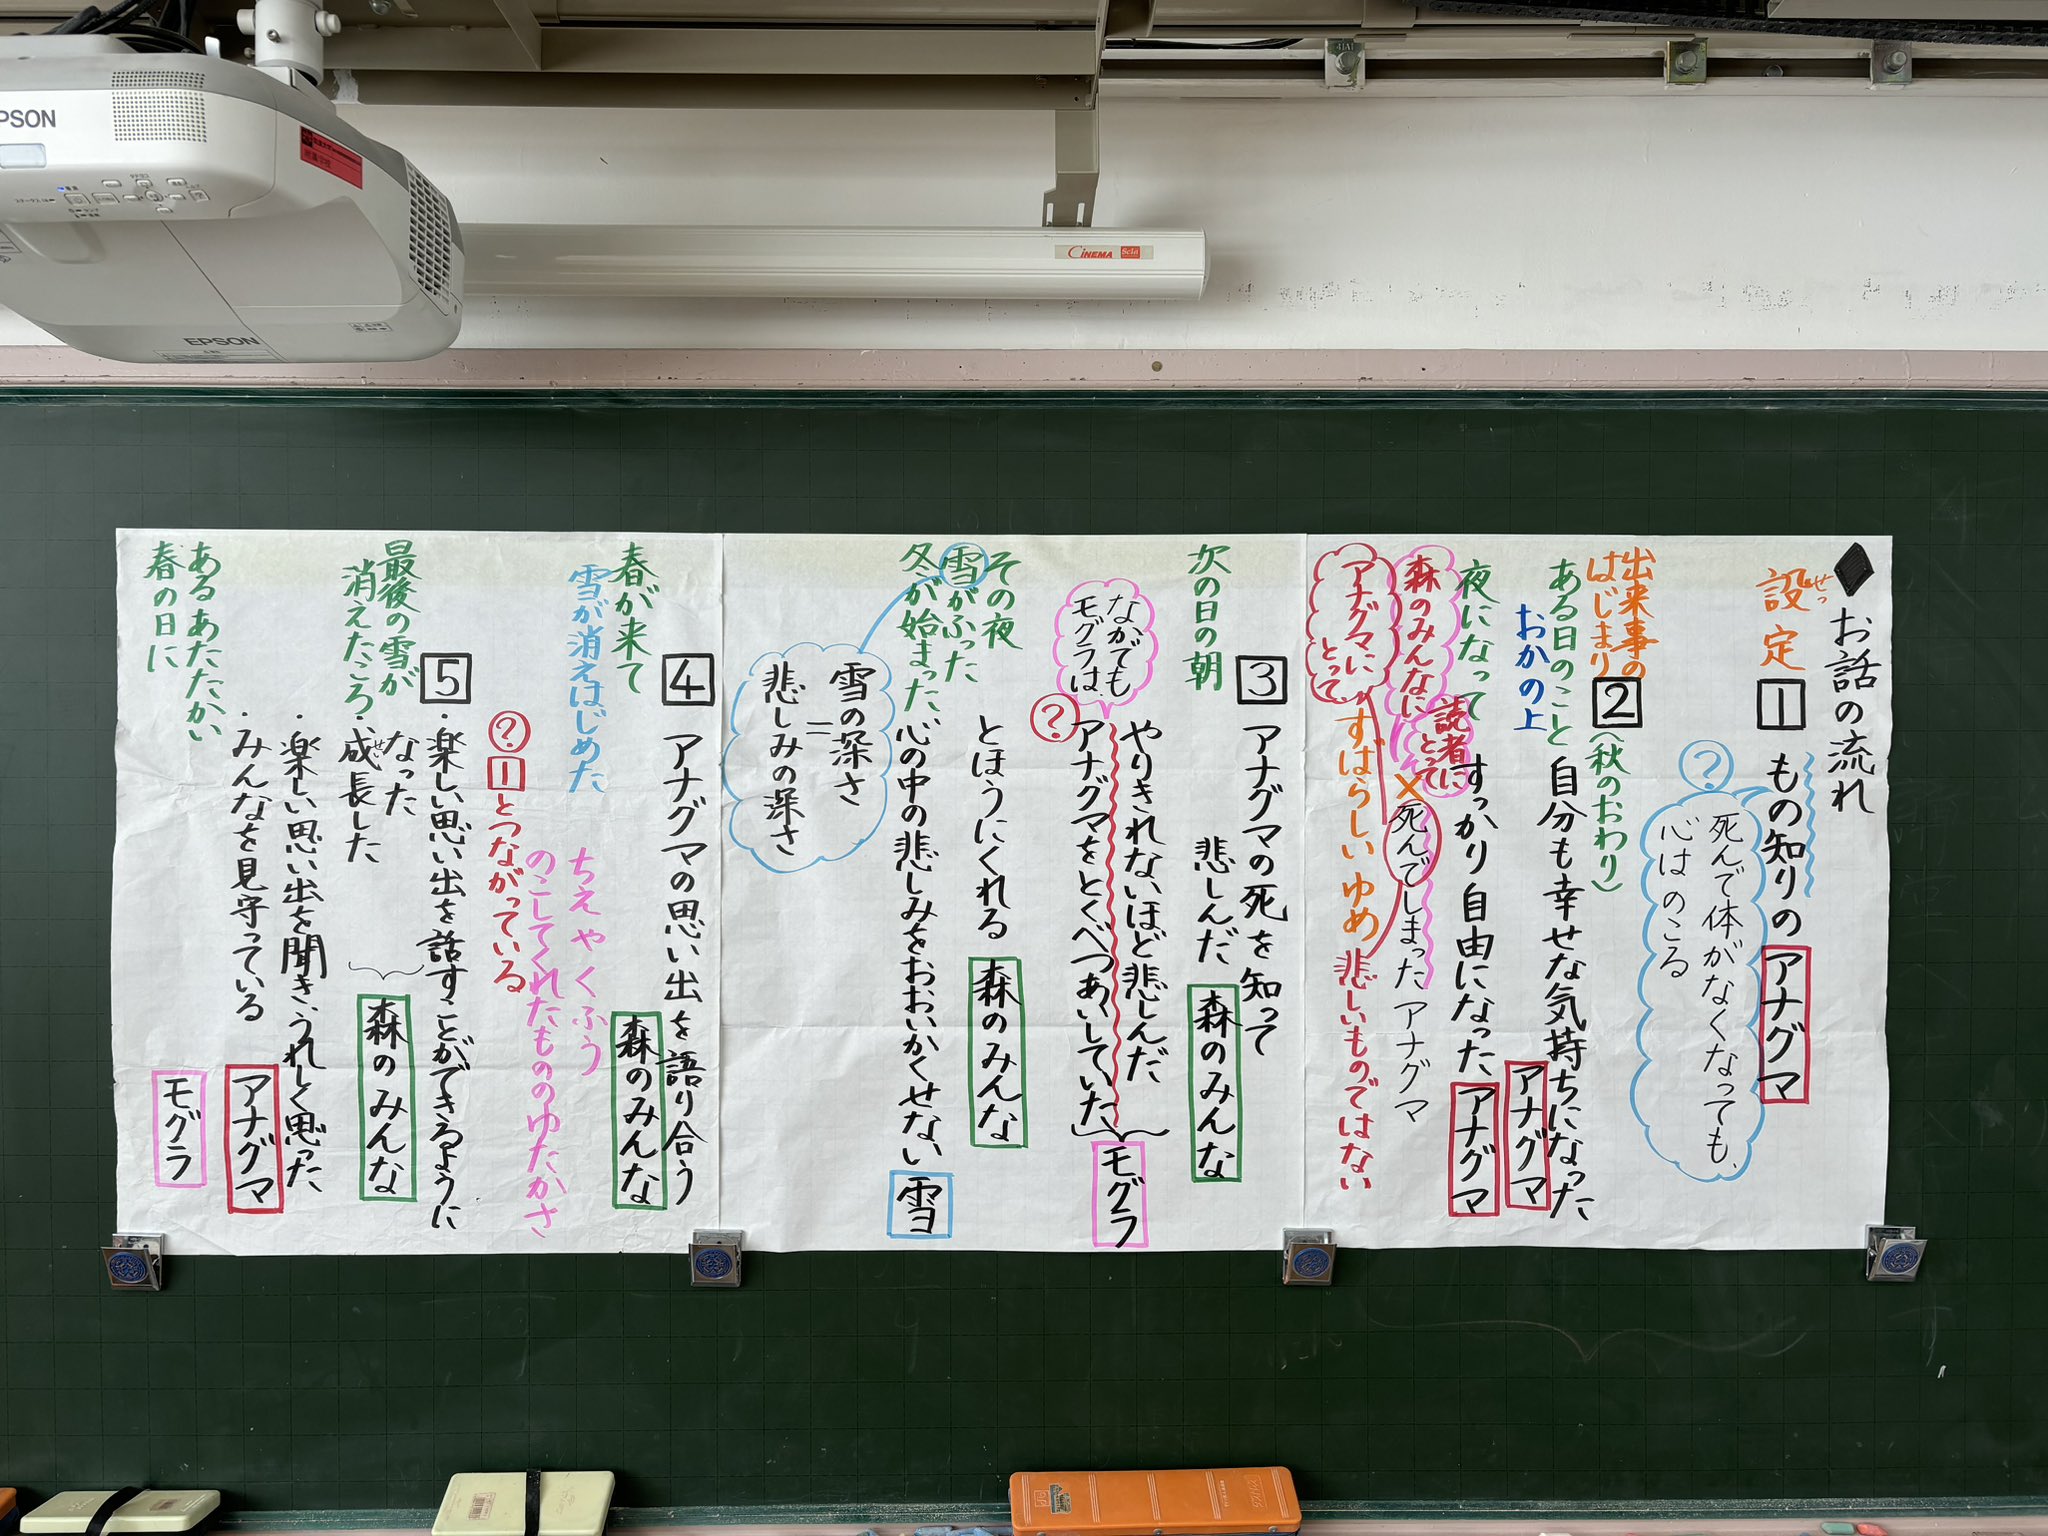 ◆お話の流れ
設定
せっ
1
もの知りのアナグマ
?
死んで体がなくなっても、
心はのこる
出来事の
はじまり
2
(秋のおわり)
ある日のこと
おかの上
自分も幸せな気持ちになった
アナグマ
夜になって
すっかり自由になった
アナグマ
読者に
とって
森のみんなに
×
死んでしまったアナグマ
アナグマに
とって
すばらしいゆめ
悲しいものではない
3
アナグマの死を知って
悲しんだ
森のみんな
次の日の朝
やりきれないほど悲しんだ
なかでも
モグラは、
?
アナグマをとくべつあいしていた
モグラ
その夜
雪がふった
冬が始まった
とほうにくれる
森のみんな
心の中の悲しみをおおいかくせない
雪
雪の深さ
=
悲しみの深さ
4
アナグマの思い出を語り合う
森のみんな
春が来て
雪が消えはじめた
ちえやくふう
のこしてくれたもののゆたかさ
?
1とつながっている
5
・楽しい思い出を話すことができるように
なった
・成長した
せい
森のみんな
最後の雪が
消えたころ
・楽しい思い出を聞き、うれしく思った
・みんなを見守っている
アナグマ
あるあたたかい
春の日に
モグラ
EPSON
EPSON
CINEMA